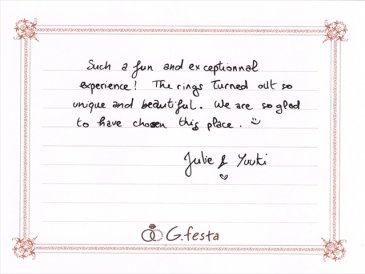 Such a fun and exceptionnal
experience! The rings turned out so
unique and beautiful. We are so glad
to have chosen this place. :)
Julie & Yuuki
♡
G.festa